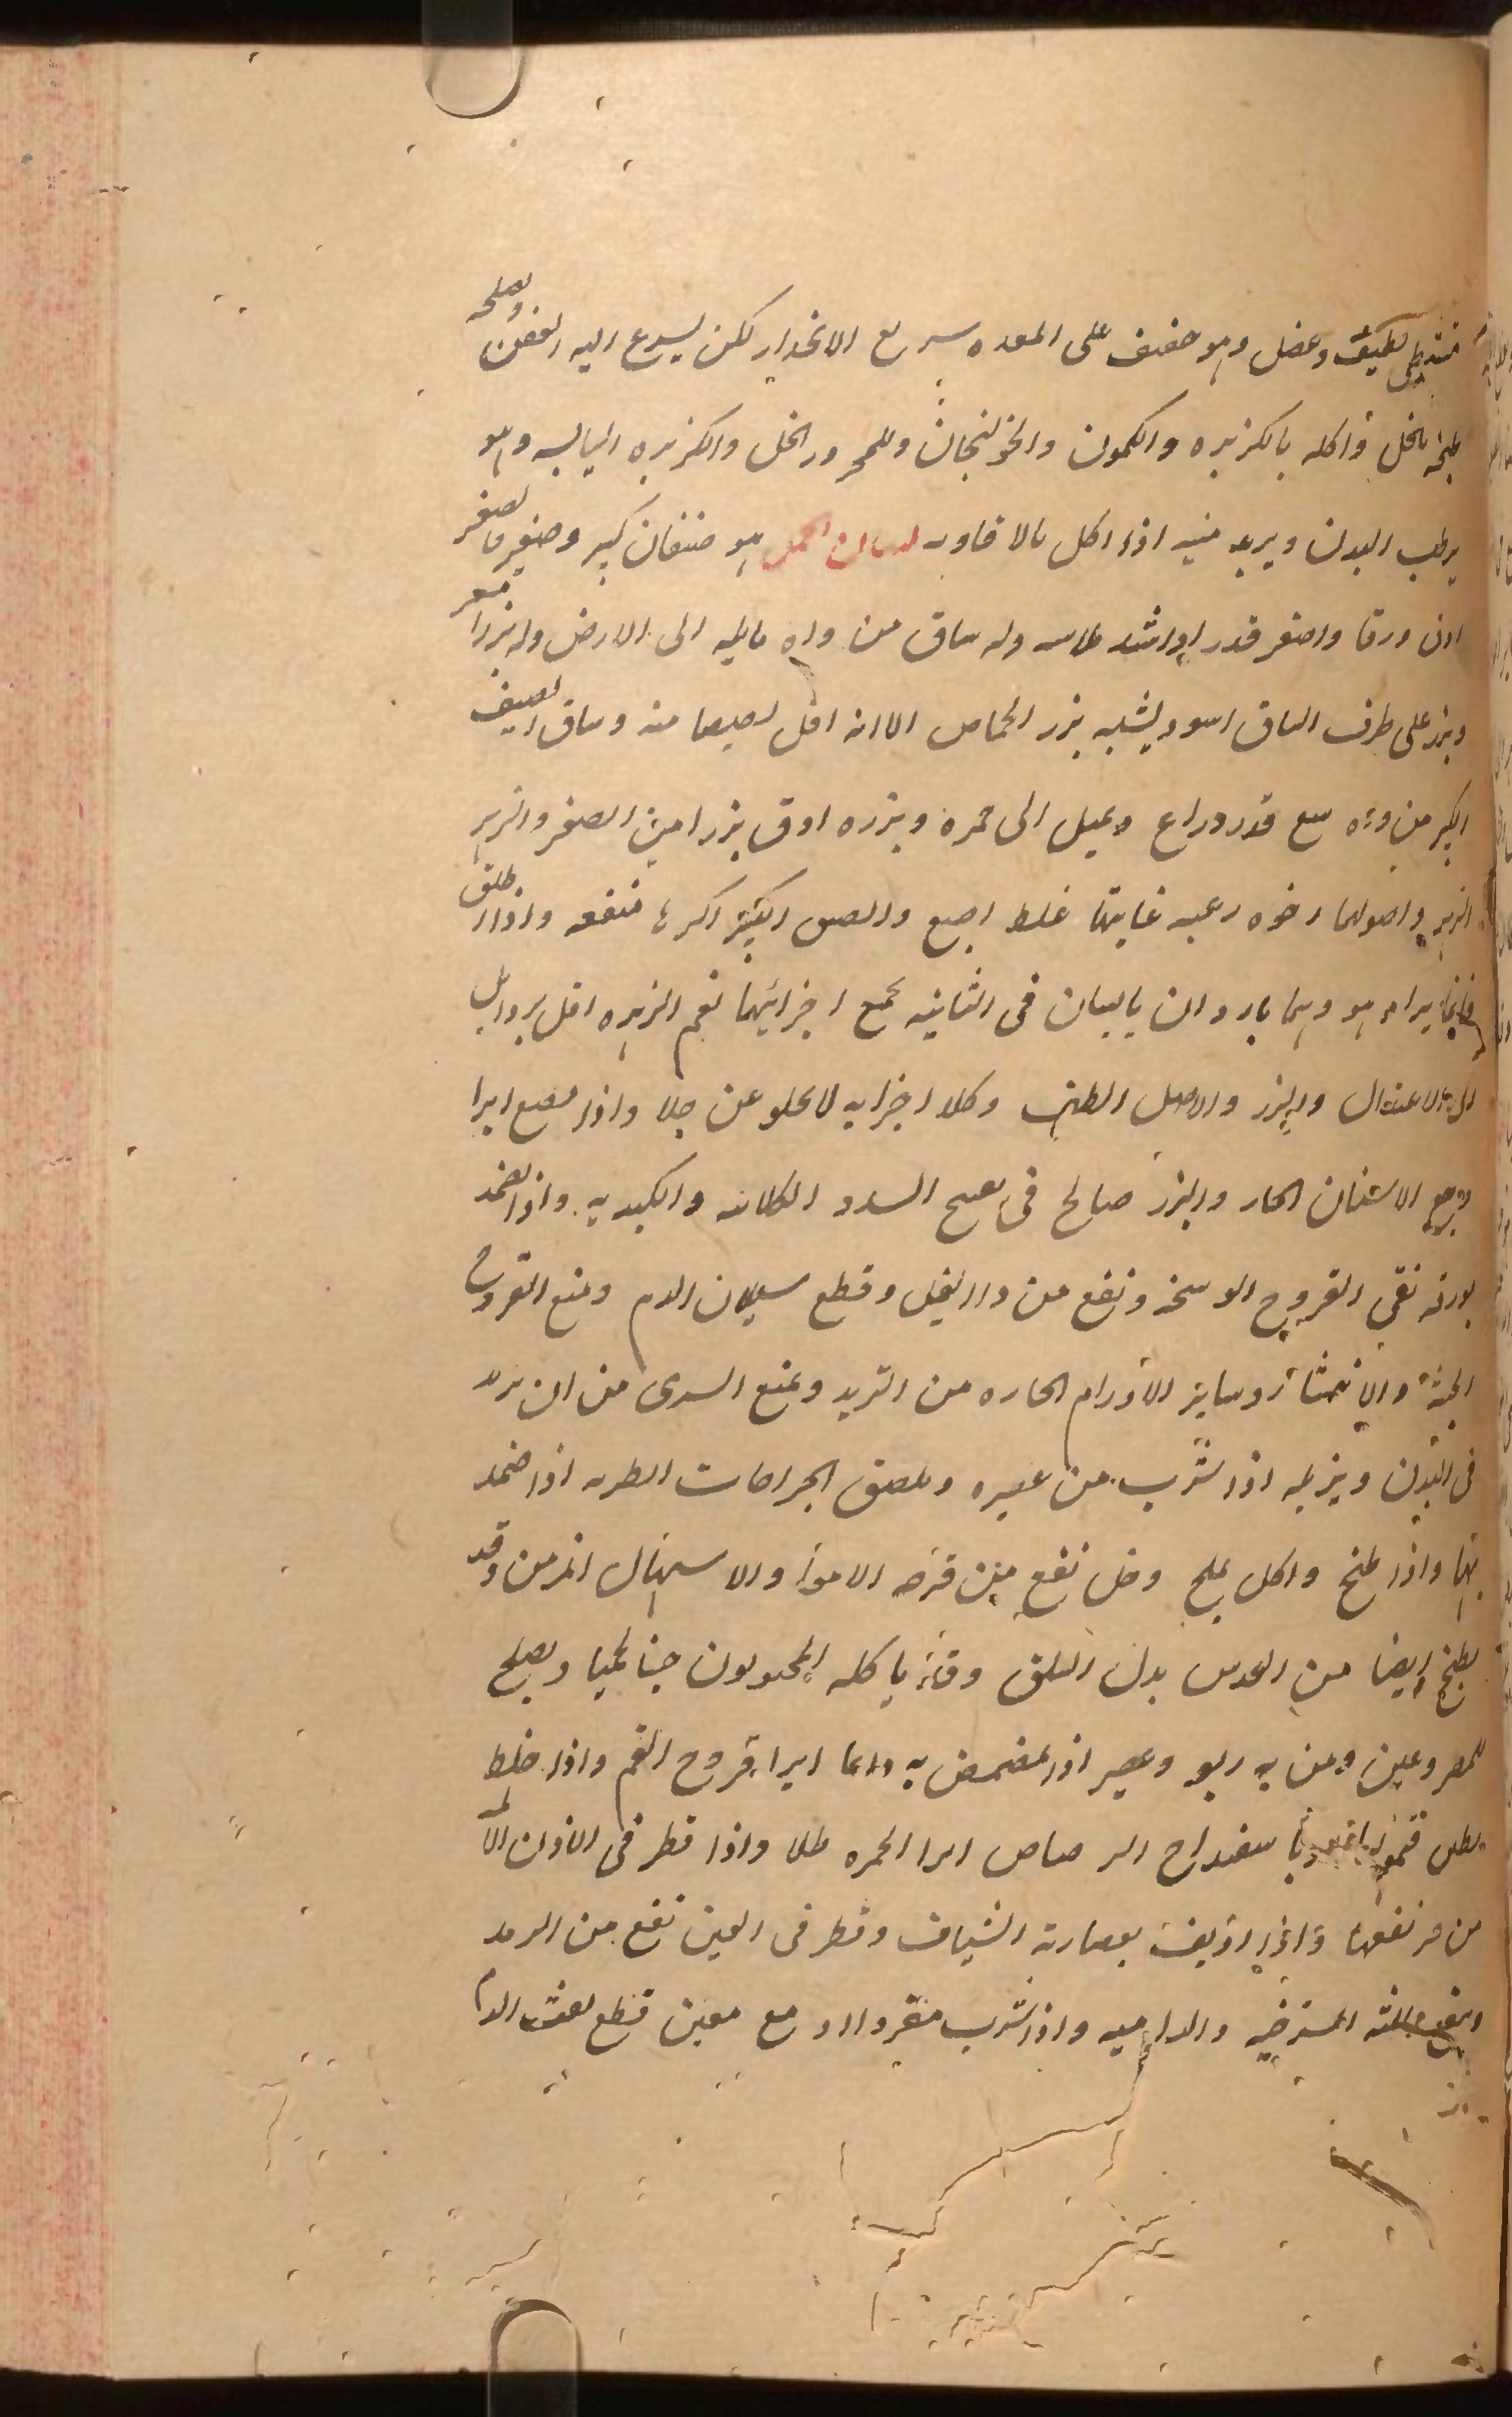 لطيف وفضل وهو خفيف على المعده سريع الانحدار لكن يسرع اليه العفن ويصلحه
طبخه بالخل واكله بالكزبره والكمون والخولنجان وللمحرور الخل والكزبره اليابسه وهو
يرطب البدن ويزيد منيه اذا اكل بالافاويه لسان الحمل هو صنفان كبير وصغير فالصغير
ادق ورقا واصغر قدرا واشد ملاسه وله ساق مزواه مايله الى الارض وله بزر اصفر
وبزر على طرف الساق اسود يشبه بزر الحماض الا انه اقل منه وساق
اكبر مزواه مع قدر ذراع ويميل الى حمره وبزره ادق بزرا من الصغير والزهر
الزهر واصولهما رخوه زغبيه غايتها غلظ اصبع والصنف الكبير اكثرها منفعه واذا اطلق
فانما يراد هو وهما باردان يابسان في الثانيه بجميع اجزائهما نعم الزهره اقل بردا بل
الى الاعتدال والبزر والاصل الطف وكلا اجزايه لا يخلو عن جلا واذا مضغ ابرا
وجع الاسنان الحار والبزر صالح في تفتيح السدد الكلائيه والكبديه واذا تضمد
بورقه نقى القروح الوسخه ونفع من داء الفيل وقطع سيلان الدم ومنع القروح
الخبيثه والانتشار وساير الاورام الحاره من التزيد ويمنع السرى من ان يزيد
في البدن ويزيله اذا شرب من عصيره ويلصق الجراحات الطريه اذا ضمد
بها واذا طبخ واكل بملح وخل نفع من قرحه الامعا والاسهال المزمن وقد
يطبخ ايضا من العدس بدل السلق وقد ياكله المحبونون حبنا لحميا ويصلح
للمصروعين ومن به ربو وعصير اذا تمضمض به دايما ابرا قروح الفم واذا خلط
بطين قيموليا اسفيداج الرصاص ابرا الحمره طلا واذا قطر في الاذان الالمه
من حر نفعها واذا اذيف بعصارته الشياف وقطر في العين نفع من الرمد
وينفع اللثه المسترخيه والداميه واذا شرب مفردا او مع معين قطع نفث الدم